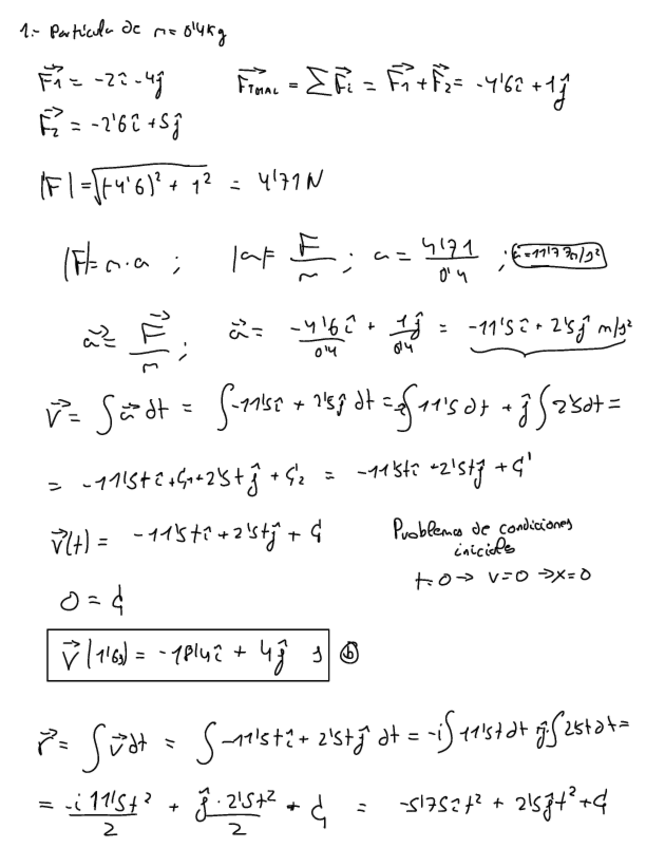 1.- Partícula de m= 0'4Kg
F⃗1 = -2î -4ĵ    F⃗TOTAL = ∑F⃗i = F⃗1 + F⃗2 = -4'6î + 1ĵ
F⃗2 = -2'6î +5ĵ
|F| = √((-4'6)² + 1²) = 4'71 N
|F|= m·a ; |a|= F/m ; a = 4'71/0'4 ; a = 11'77m/s²
a⃗ = F⃗/m ; a⃗ = -4'6î/0'4 + 1ĵ/0'4 = -11'5î + 2'5ĵ m/s²
v⃗ = ∫a⃗ dt = ∫-11'5î + 2'5ĵ dt = -î∫11'5 dt + ĵ∫2'5dt =
= -11'5tî + C1 + 2'5tĵ + C2 = -11'5tî + 2'5tĵ + C'
v⃗(t) = -11'5tî + 2'5tĵ + C    Problemas de condiciones
iniciales
t=0 → v=0 → x=0
0 = C
v⃗(1'6s) = -18'4î + 4ĵ    b
r⃗ = ∫v⃗dt = ∫-11'5tî + 2'5tĵ dt = -i∫11'5tdt ĵ∫2'5tdt =
= -i 11'5t²/2 + ĵ·2'5t²/2 + C = -5'75ît² + 2'5ĵt² + C